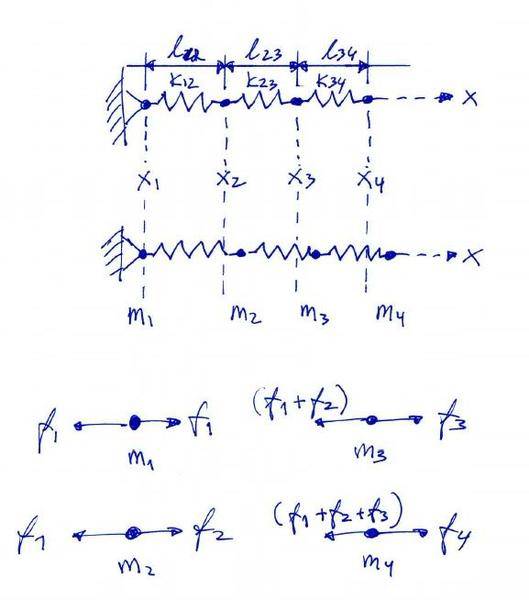 l12 l23 l34
k12 k23 k34
x
x1 x2 x3 x4
x
m1 m2 m3 m4
f1 f1 (f1+f2) f3
m1 m3
f1 f2 (f1+f2+f3) f4
m2 m4